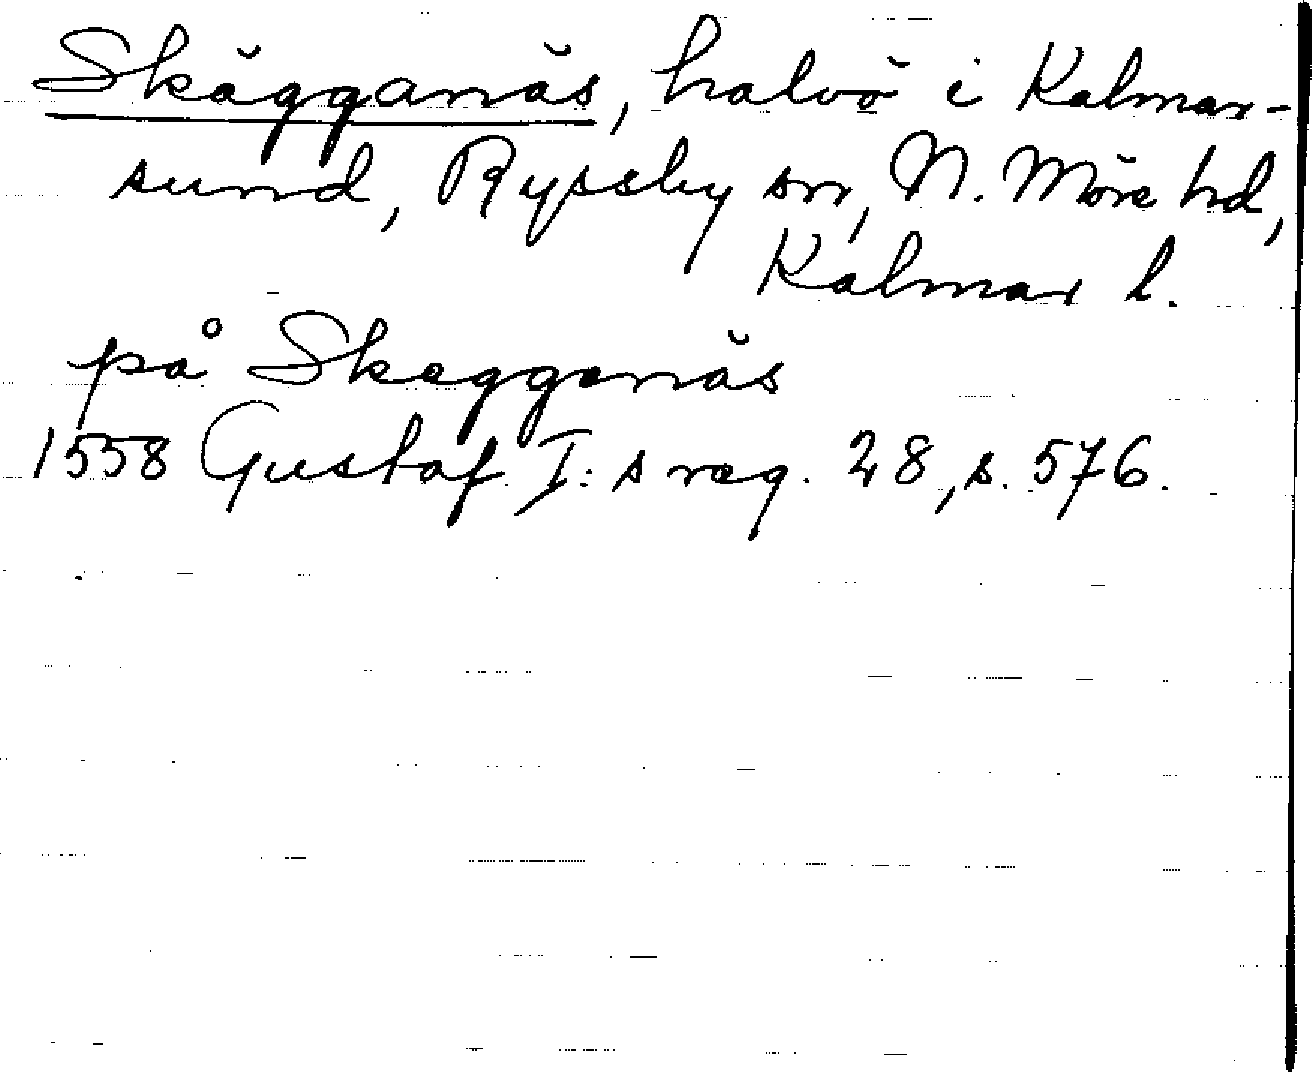 Skägganäs, halvö i Kalmar-
sund, Ryssby sn, N. Möre hd,
Kalmar l.
på Skegganäs
1558 Gustaf I:s reg. 28, s. 576.